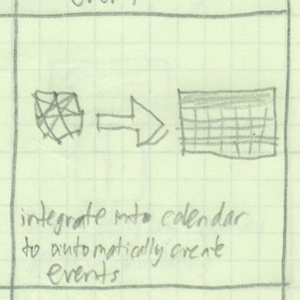 integrate into calendar
to automatically create
events